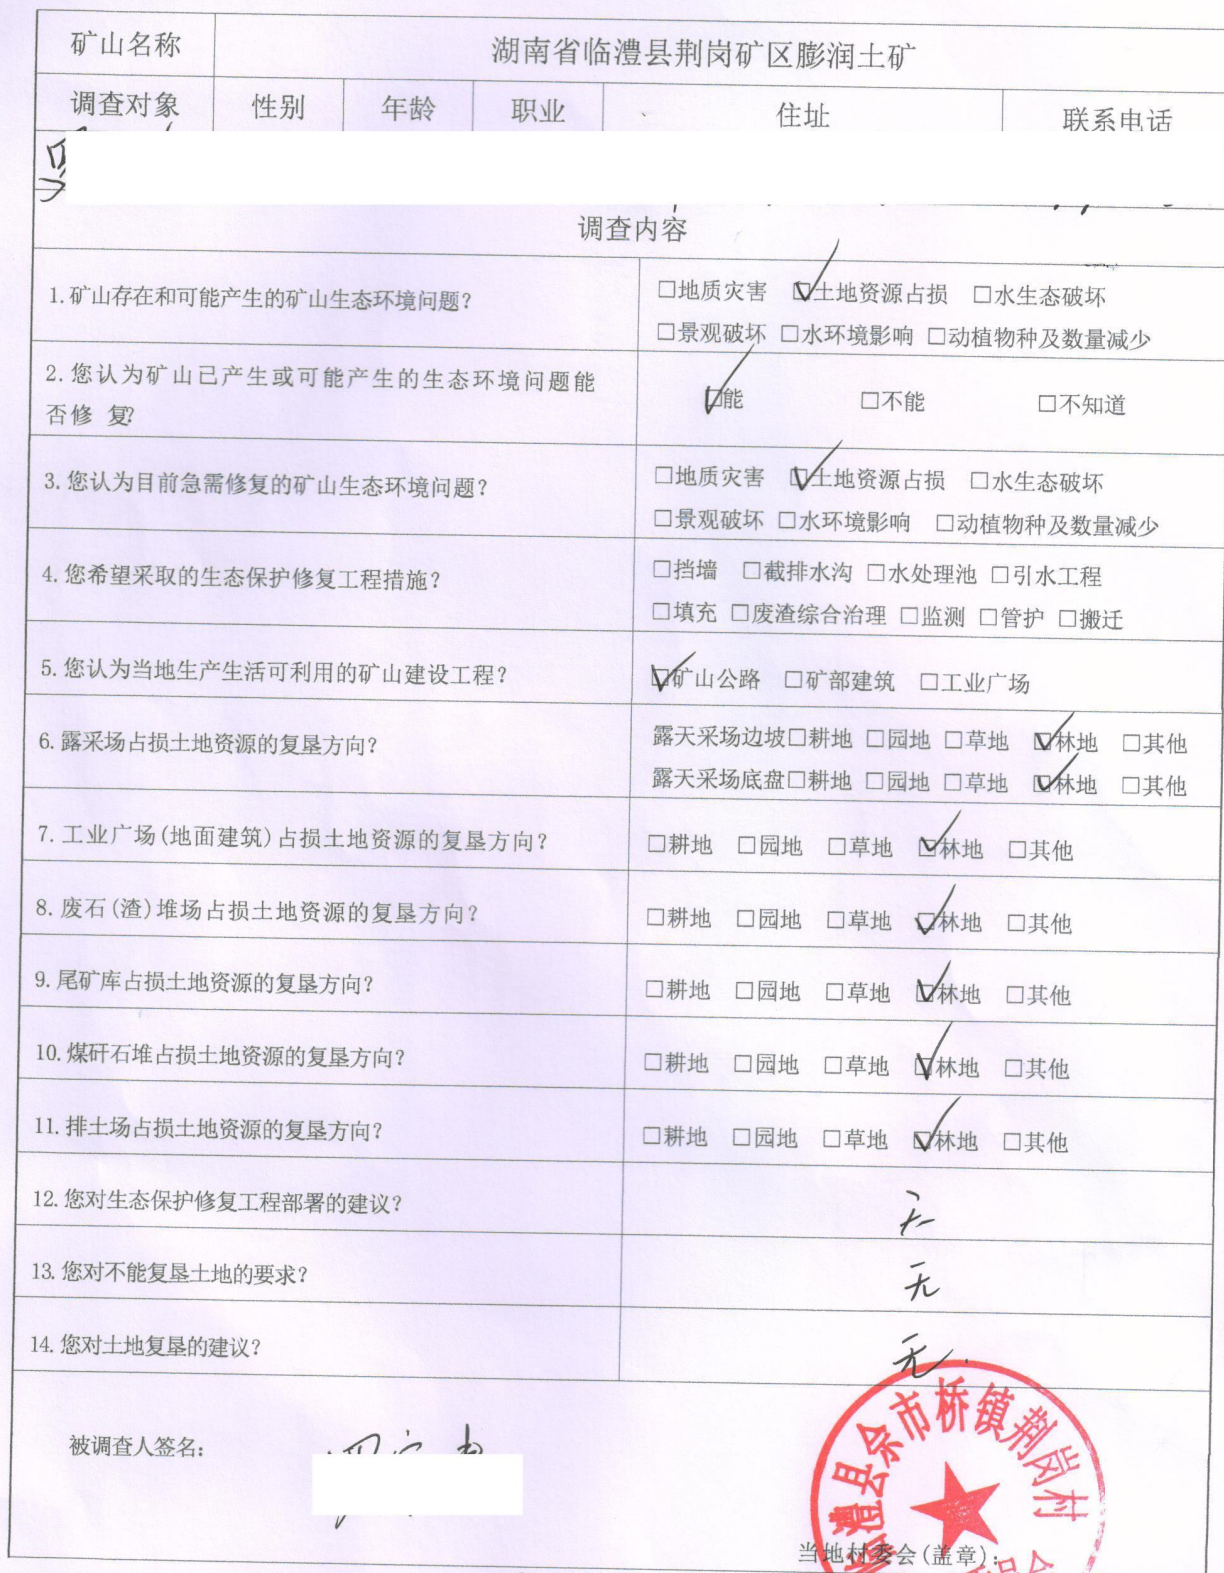 矿山名称 湖南省临澧县荆岗矿区膨润土矿
调查对象 性别 年龄 职业 住址 联系电话
调查内容
1.矿山存在和可能产生的矿山生态环境问题? □地质灾害 ☑土地资源占损 □水生态破坏
□景观破坏 □水环境影响 □动植物种及数量减少
2.您认为矿山已产生或可能产生的生态环境问题能
否修 复? ☑能 □不能 □不知道
3.您认为目前急需修复的矿山生态环境问题? □地质灾害 ☑土地资源占损 □水生态破坏
□景观破坏 □水环境影响 □动植物种及数量减少
4.您希望采取的生态保护修复工程措施? □挡墙 □截排水沟 □水处理池 □引水工程
□填充 □废渣综合治理 □监测 □管护 □搬迁
5.您认为当地生产生活可利用的矿山建设工程? ☑矿山公路 □矿部建筑 □工业广场
6.露采场占损土地资源的复垦方向? 露天采场边坡□耕地 □园地 □草地 ☑林地 □其他
露天采场底盘□耕地 □园地 □草地 ☑林地 □其他
7.工业广场(地面建筑)占损土地资源的复垦方向? □耕地 □园地 □草地 ☑林地 □其他
8.废石(渣)堆场占损土地资源的复垦方向? □耕地 □园地 □草地 ☑林地 □其他
9.尾矿库占损土地资源的复垦方向? □耕地 □园地 □草地 ☑林地 □其他
10.煤矸石堆占损土地资源的复垦方向? □耕地 □园地 □草地 ☑林地 □其他
11.排土场占损土地资源的复垦方向? □耕地 □园地 □草地 ☑林地 □其他
12.您对生态保护修复工程部署的建议? 无
13.您对不能复垦土地的要求? 无
14.您对土地复垦的建议? 无.
被调查人签名:
澧县佘市桥镇荆岗村
当地村委会(盖章):